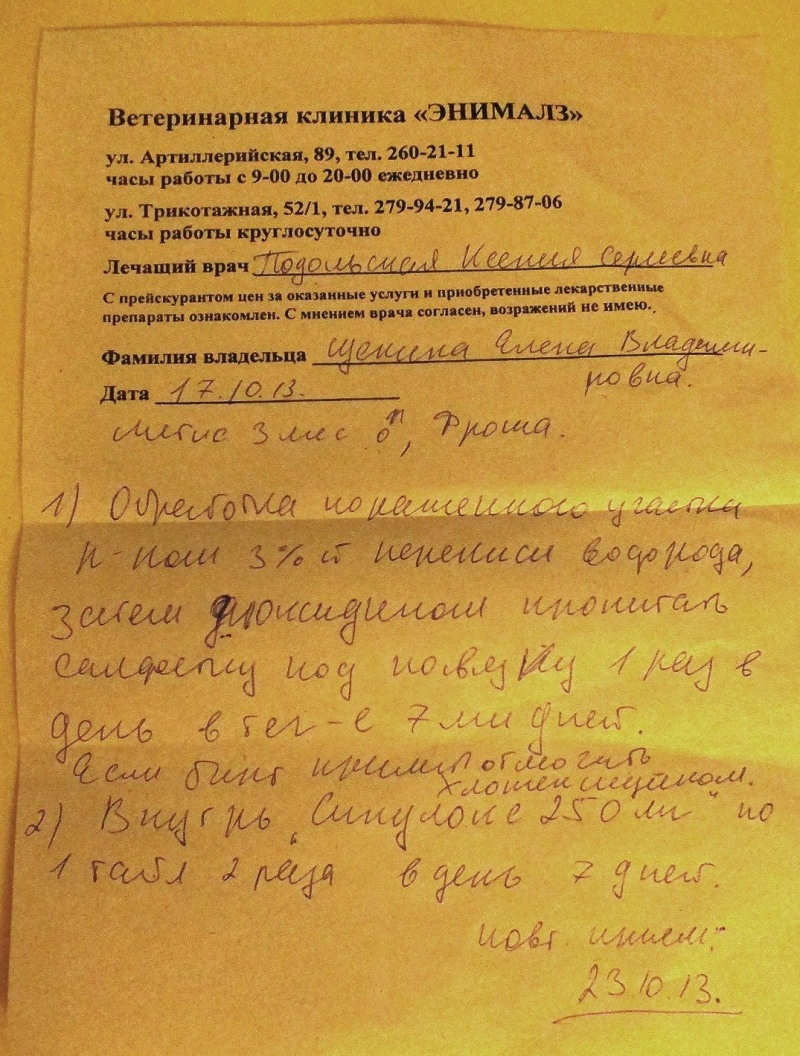 Ветеринарная клиника «ЭНИМАЛЗ»
ул. Артиллерийская, 89, тел. 260-21-11
часы работы с 9-00 до 20-00 ежедневно
ул. Трикотажная, 52/1, тел. 279-94-21, 279-87-06
часы работы круглосуточно
Лечащий врач Подольская Ксения Сергеевна
С прейскурантом цен за оказанные услуги и приобретенные лекарственные
препараты ознакомлен. С мнением врача согласен, возражений не имею.
Фамилия владельца Щекина Елена Владими-
ровна.
Дата 17.10.13.
Метис 3 мес ♂, Фроша.
1) Обработка пораженного участка
р-ром 3%й перекиси водорода,
затем диоксидином пропитать
салфетку под повязку 1 раз в
день в теч-е 7ми дней.
Если бинт отмочить
хлоргексидином.
2) Внутрь „Синулокс 250 мг" по
1 табл 2 раза в день 7 дней.
повт. прием:
23.10.13.